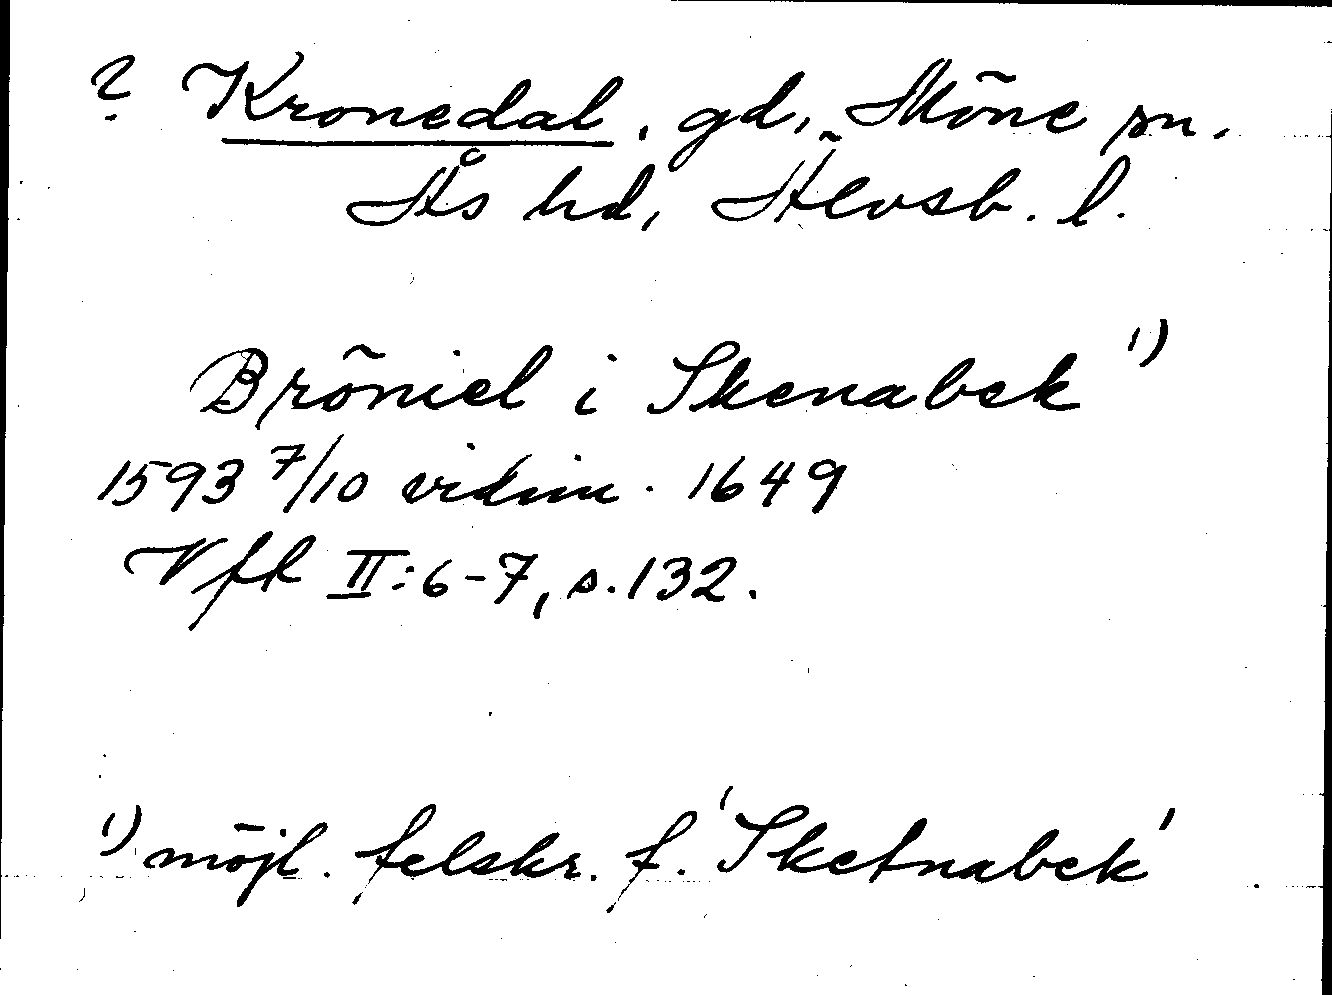 ? Kronedal, gd, Möne sn.
Ås hd, Älvsb. l.
Bröniel i Skenabek ¹)
1593 7/10 vidim. 1649
Vfk II:6-7, s.132.
¹) möjl. felskr. f. 'Sketnabek'